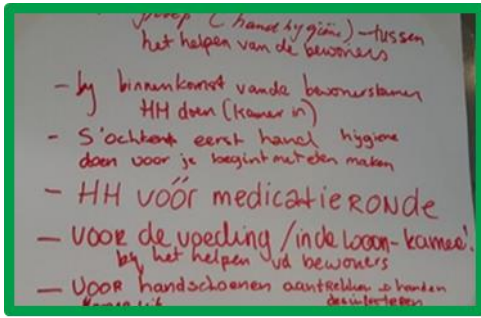 (hand hygiëne) - tussen
het helpen van de bewoners
- by binnenkomst vande bewonerskamer
HH doen (kamer in)
- S'ochtens eerst hand hygiene
doen voor je begint met eten maken
- HH VÓÓR medicatieRONDE
- VOOR de voeding / in de woon-kamer!
by het helpen vd bewoners
- VOOR handschoenen aantrekken handen
desinfecteren